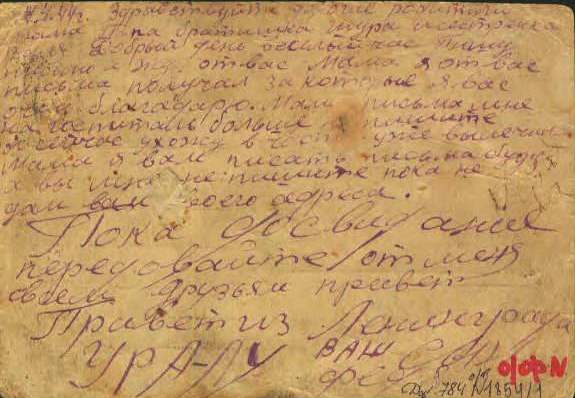 4.44г. Здравствуйте дорогие родители
мама папа братишка шура и сестренка
Валя добрый день веселый час пишу
письмо и жду от вас Мама я от вас
письма получал за которые я вас
очень благодарю. Мама письма мне
на госпиталь больше пишите
я сейчас ухожу в часть уже вылечил
Мама я вам писать письма буду
а вы мне не пишите пока не
дам вам своего адреса.
Пока досвидание
передовайте от меня
всем друзьям привет
Привет из Ленинграда
УРА-ЛУ ВАШ
784 1354/1